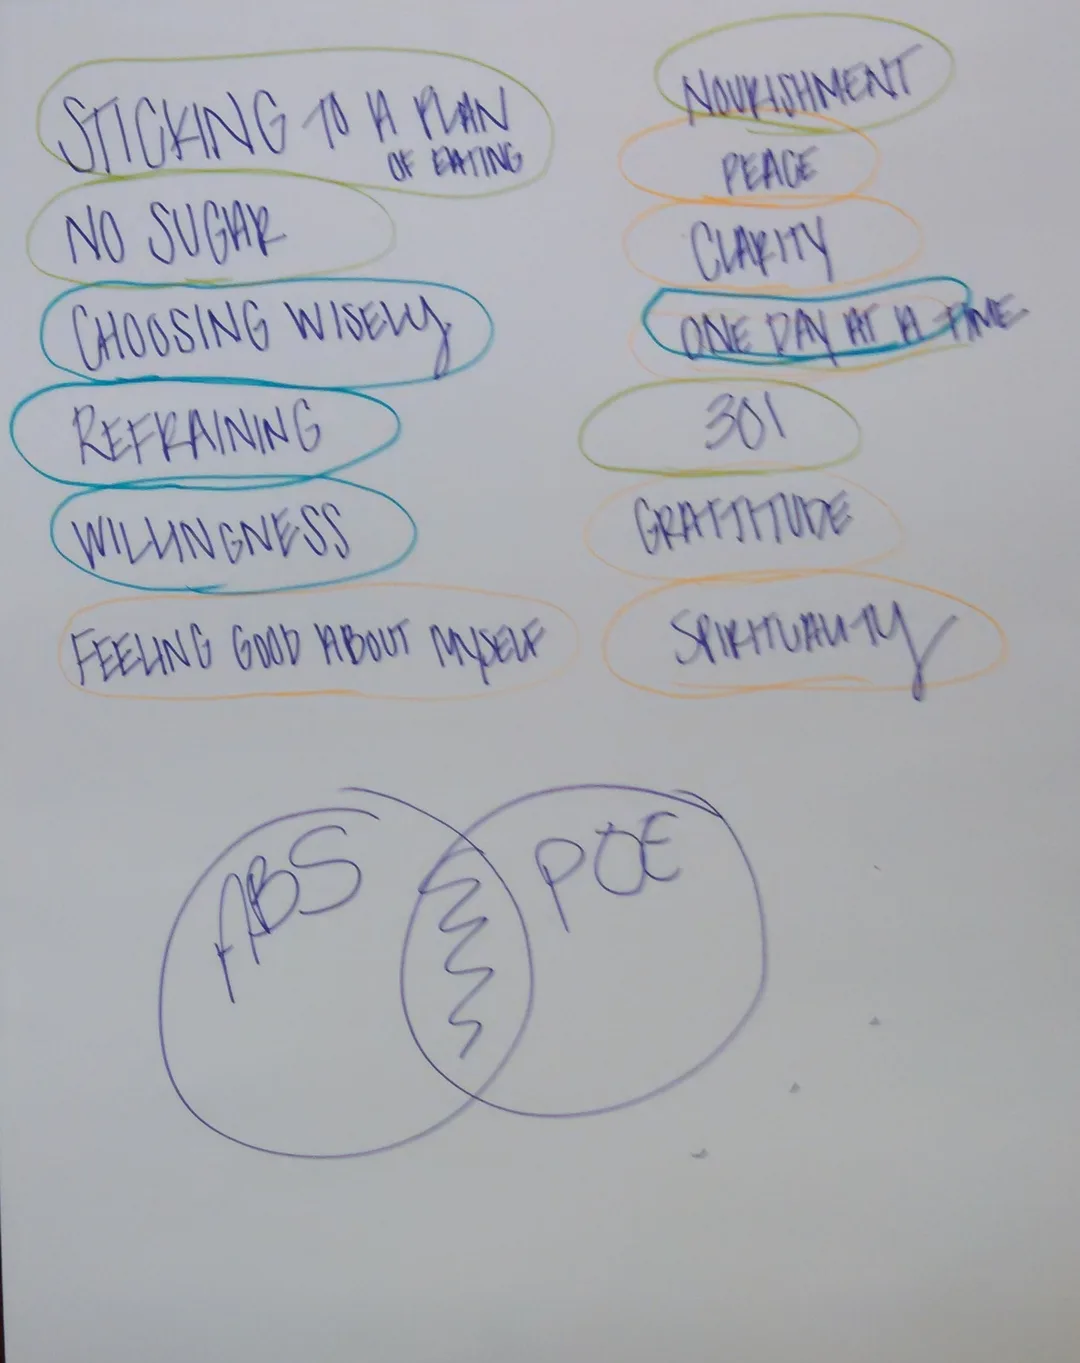 STICKING TO A PLAN
OF EATING
NO SUGAR
CHOOSING WISELY
REFRAINING
WILLINGNESS
FEELING GOOD ABOUT MYSELF
NOURISHMENT
PEACE
CLARITY
ONE DAY AT A TIME
301
GRATITUDE
SPIRITUALITY
ABS
POE